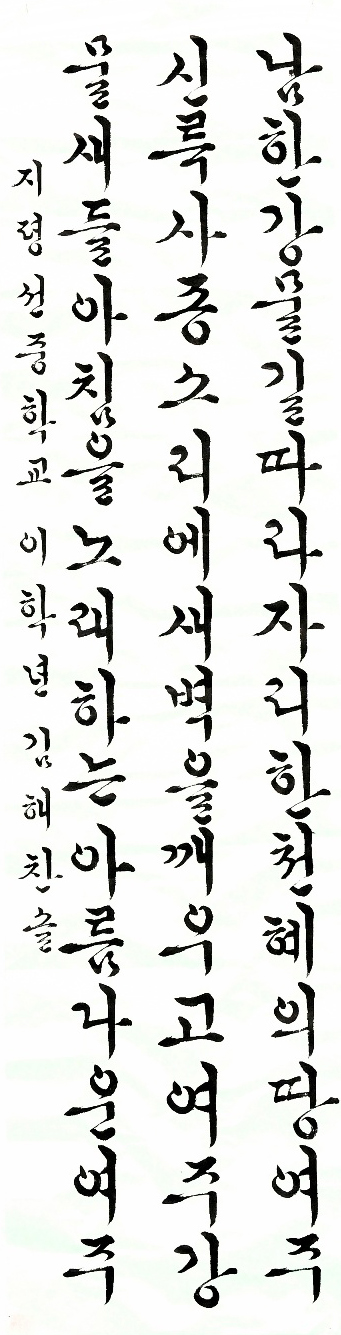 남한강물길따라자리한천혜의땅여주
신륵사종소리에새벽을깨우고여주강
물새들아침을노래하는아름다운여주
지평선중학교 이학년 김해찬슬